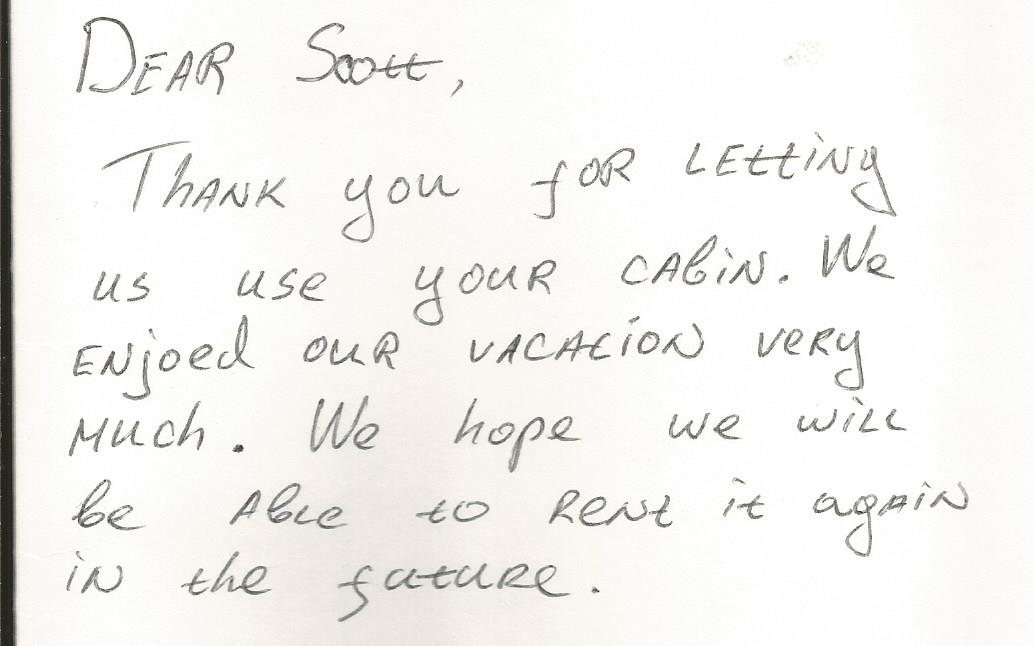 Dear Scott,
Thank you for letting
us use your cabin. We
enjoed our vacation very
much. We hope we will
be able to rent it again
in the future.